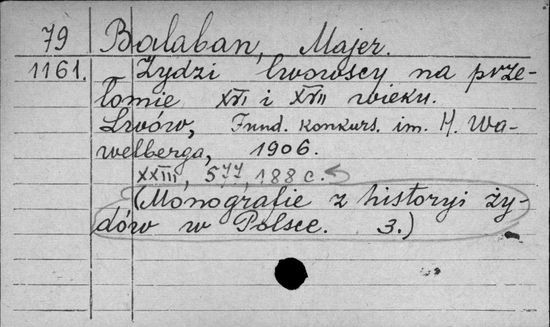 79 Bałaban, Majer.
1161. Żydzi lwowscy na prze-
łomie XVI i XVII wieku.
Lwów, Fund. konkurs. im. H. Wa-
welberga, 1906.
XXIII, 577, 188 c.
(Monografie z historyi ży-
dów w Polsce. 3.)